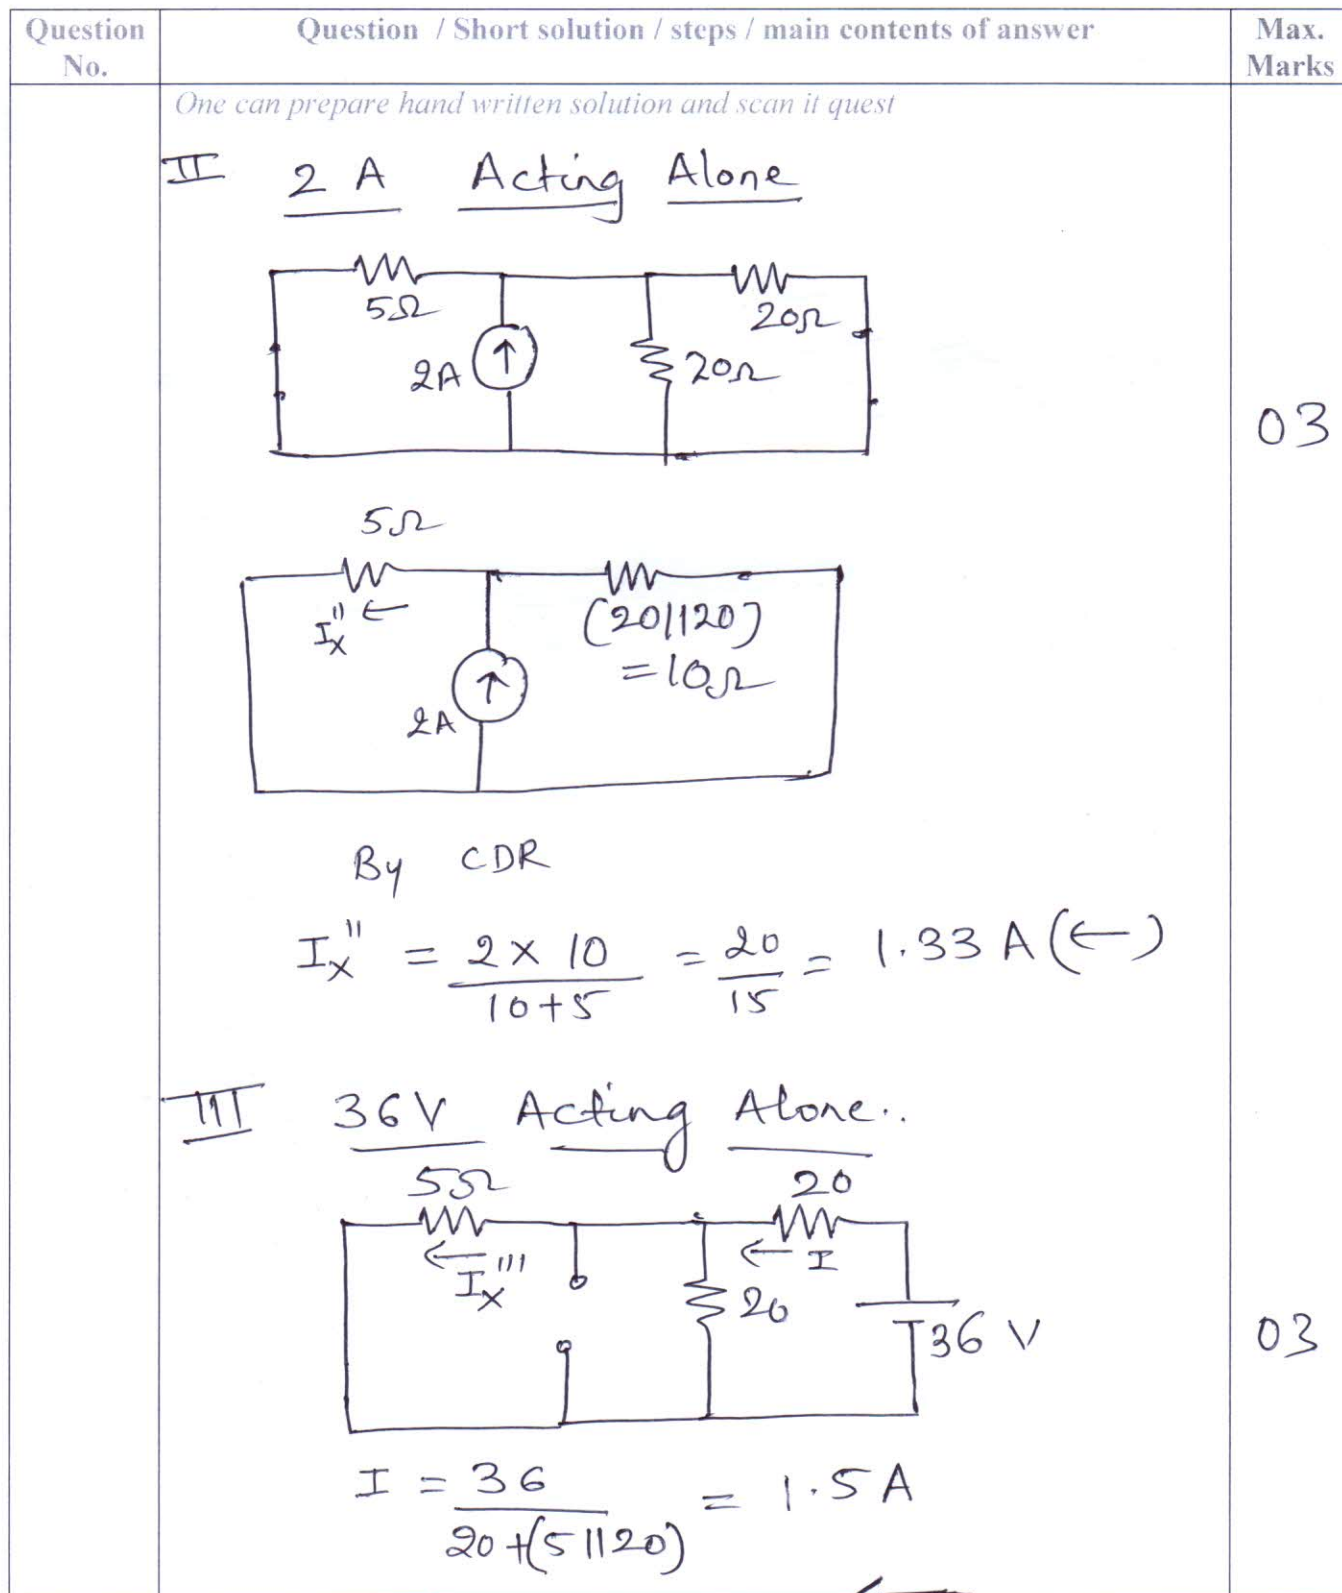 Question No.
Question / Short solution / steps / main contents of answer
Max. Marks
One can prepare hand written solution and scan it quest
II 2 A Acting Alone
5Ω
20Ω
2A
20Ω
03
5Ω
Ix'' ←
(20||20)
=10Ω
2A
By CDR
Ix'' = 2 × 10 / 10+5 = 20 / 15 = 1.33 A (←)
III 36V Acting Alone..
5Ω
20
← Ix'''
← I
20
36 V
03
I = 36 / 20+(5||20) = 1.5 A